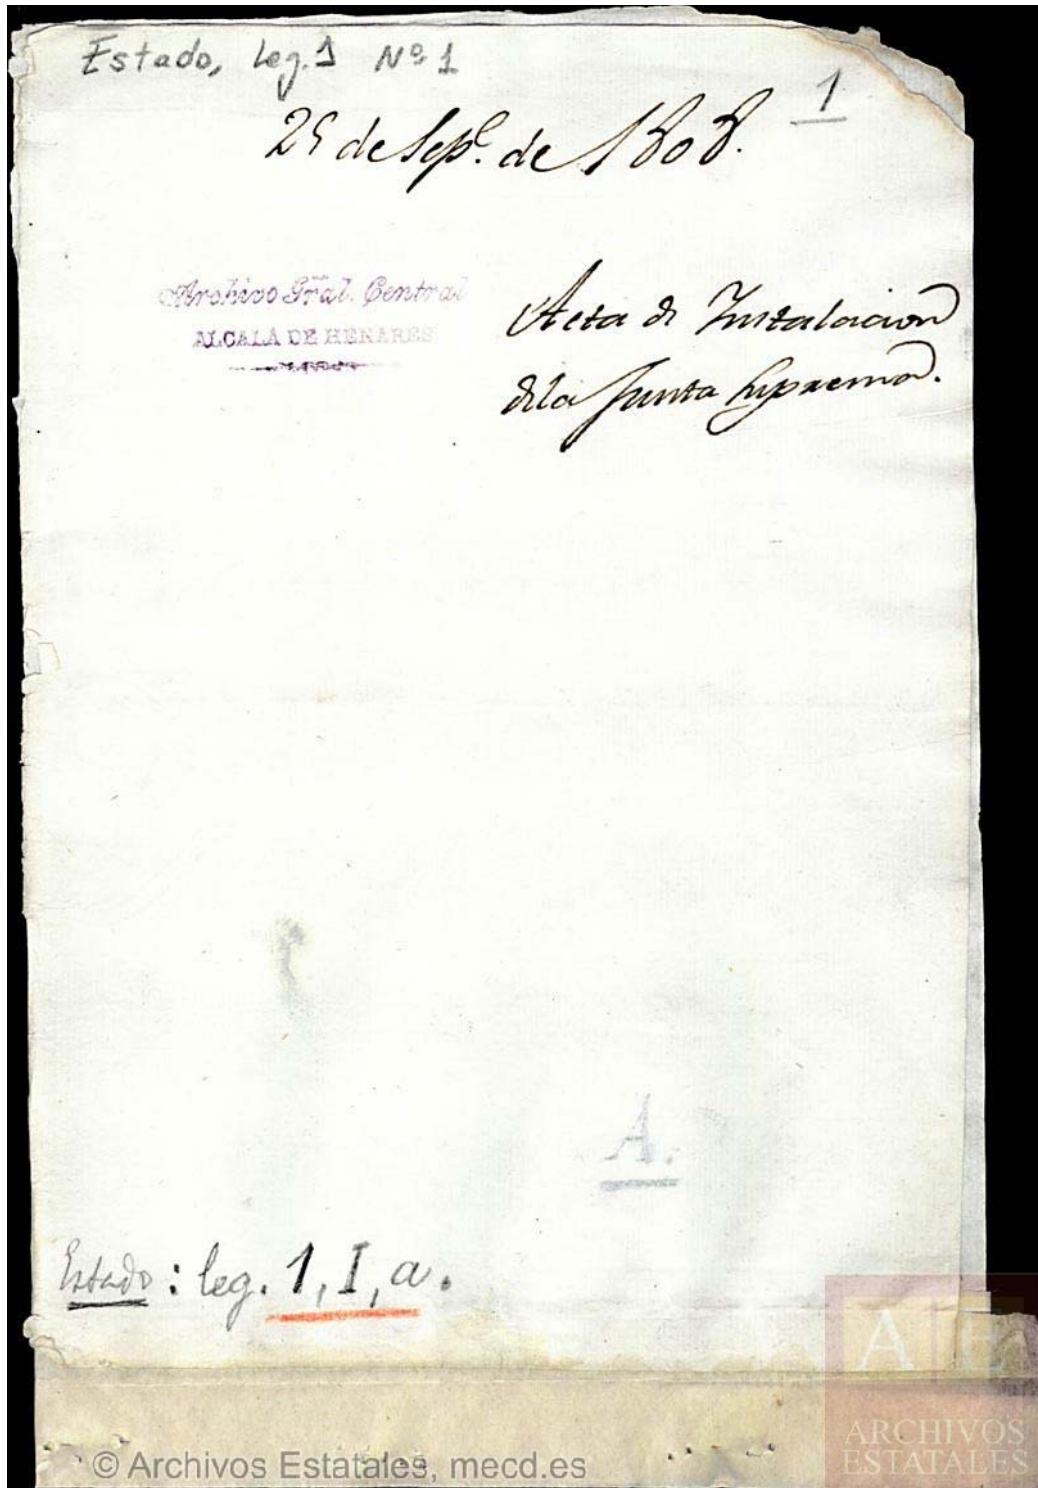 Estado, Leg. 1 Nº 1
1
25 de Sepe. de 1808.
Archivo Gral. Central
ALCALA DE HENARES
Acta de Instalacion
de la Junta Suprema.
A.
Estado: leg. 1, I, a.
© Archivos Estatales, mecd.es
A E
ARCHIVOS
ESTATALES